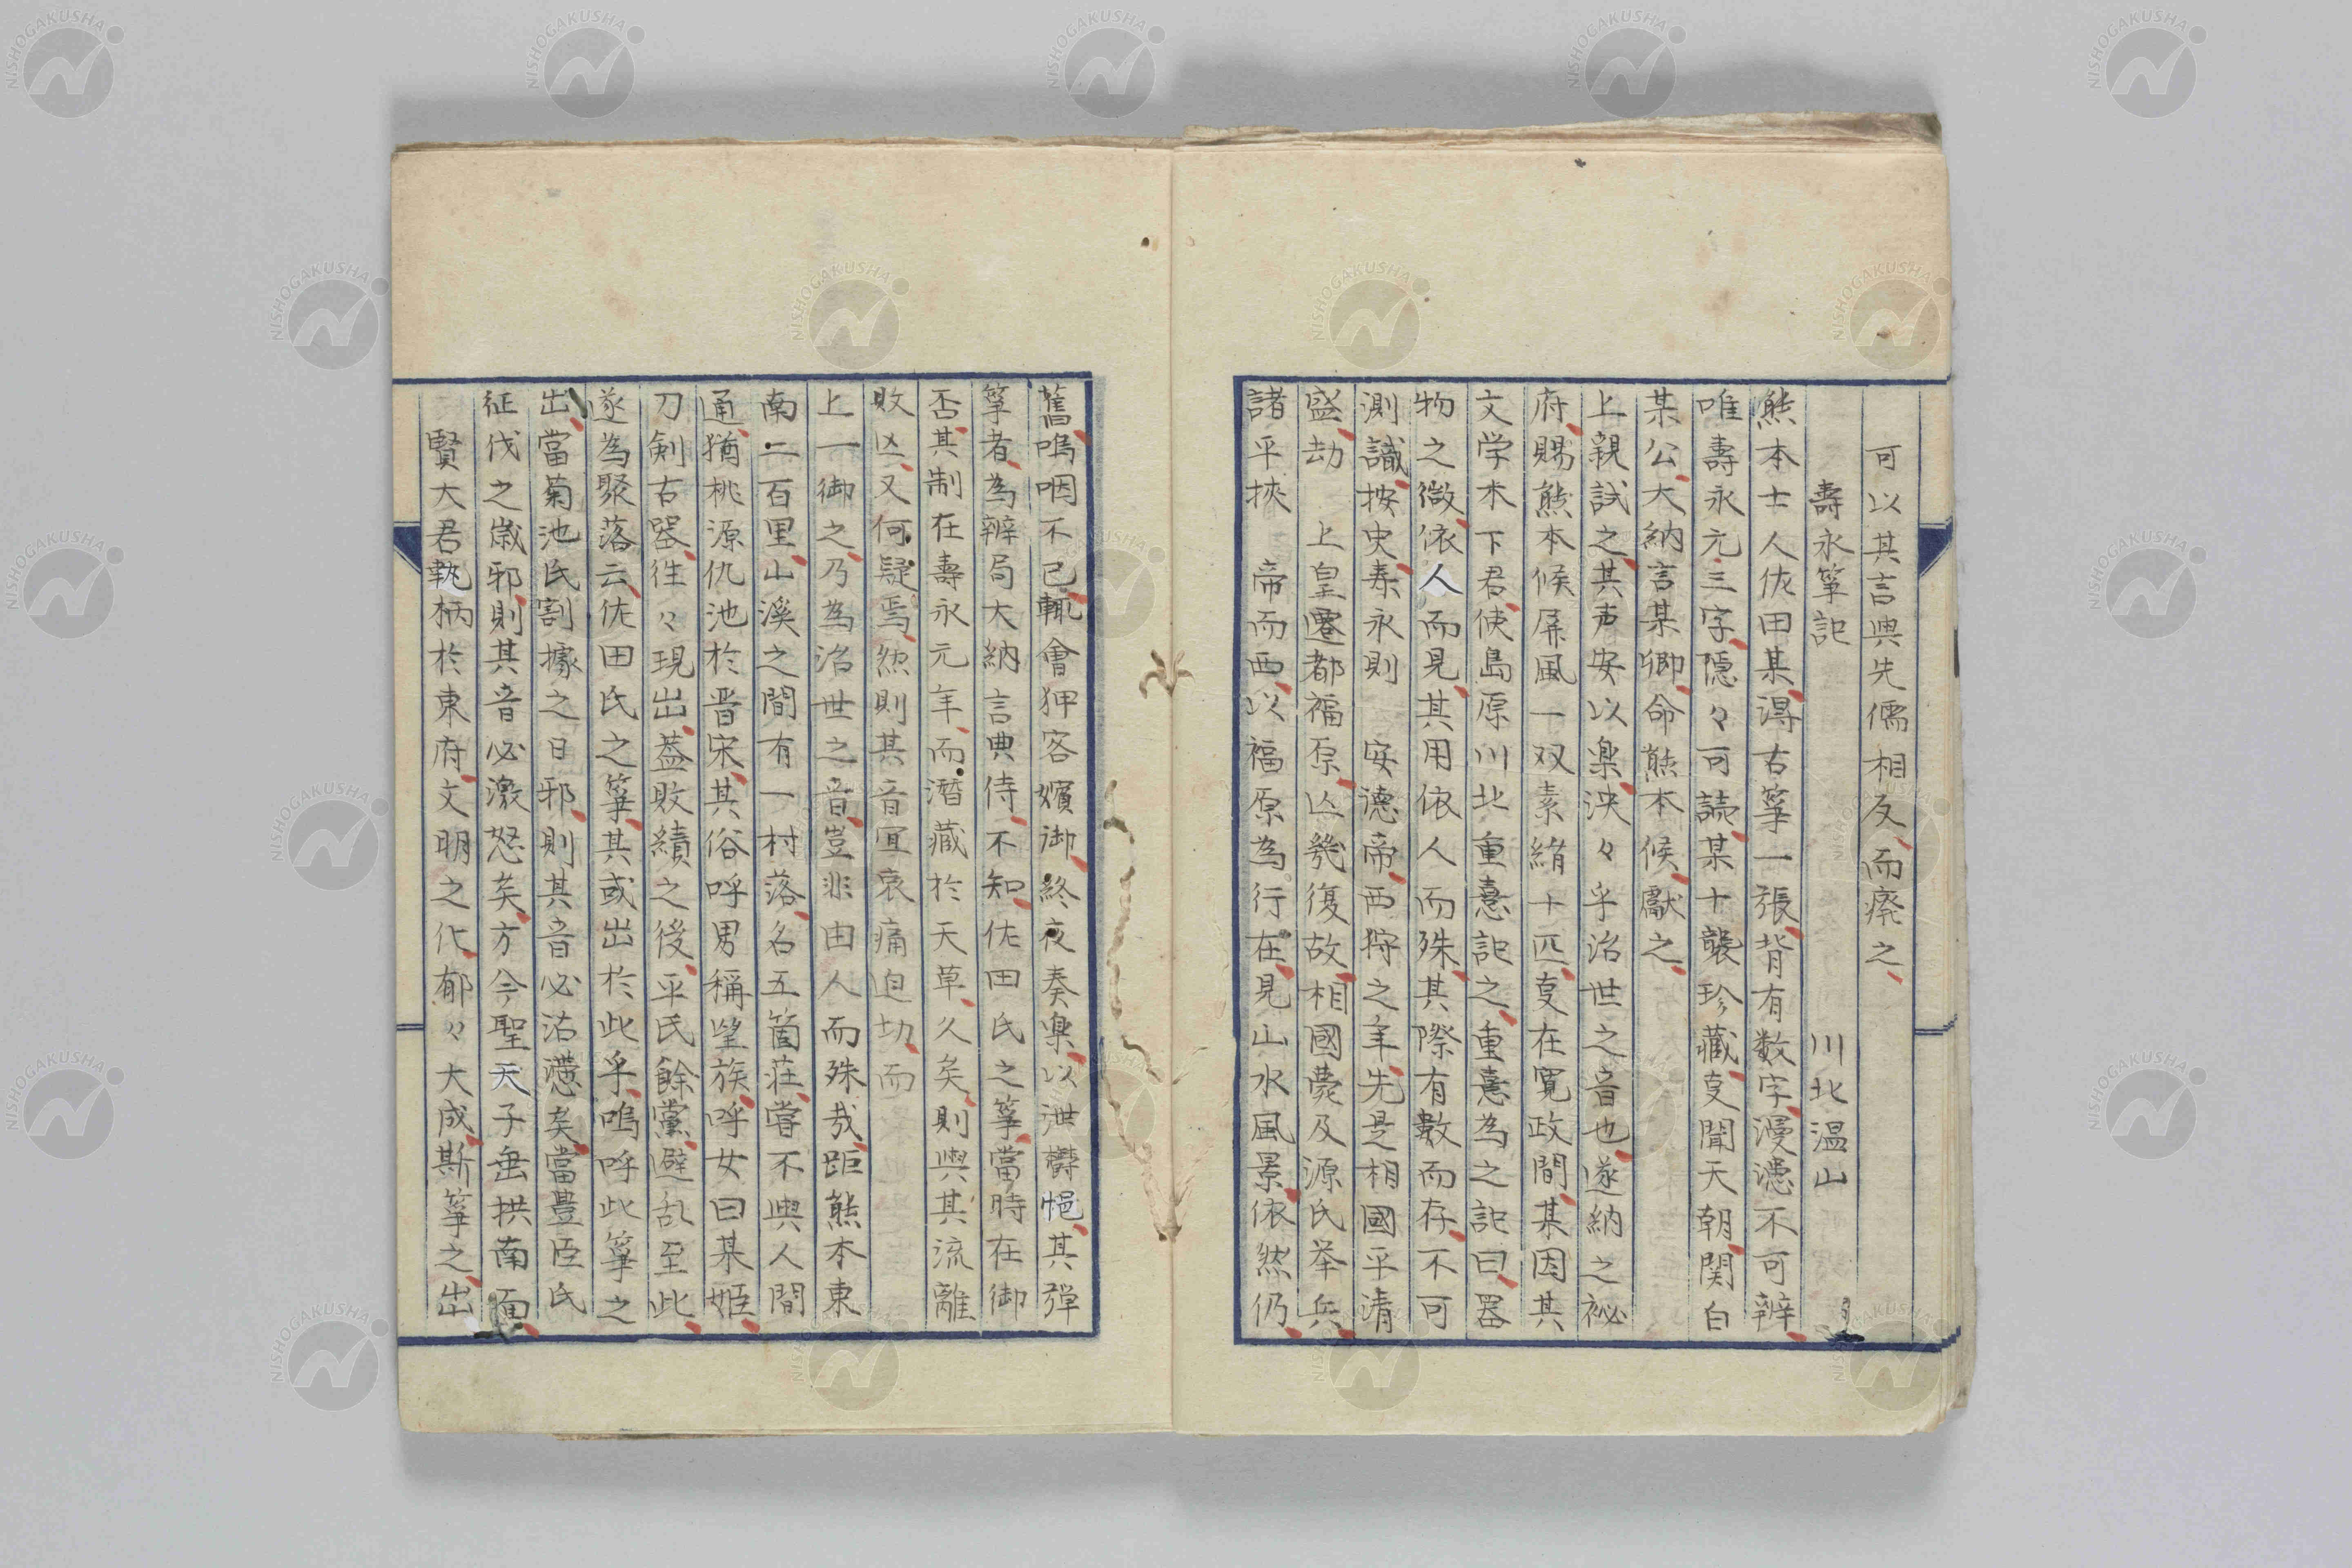 可以其言與先儒相反而廃之
壽永箏記 川北温山
熊本士人佐田某得古箏一張背有数字漫漶不可辨
唯壽永元三字隠々可読某十襲珍藏事聞天朝関白
某公大納言某卿命熊本候獻之
上親試之其声安以楽泱々乎治世之音也遂納之秘
府賜熊本候屏風一双素絹十匹事在寛政間某因其
文学木下君使島原川北重憙記之重憙為之記曰器
物之微依人而見其用依人而殊其際有數而存不可
測識按史寿永則 安德帝西狩之年先是相國平清
盛劫 上皇遷都福原亾幾復故相國薨及源氏挙兵
諸平挾 帝而西以福原為行在見山水風景依然仍
舊嗚咽不已輒會狎客嬪御終夜奏楽以泄欝悒其弾
箏者為辨局大納言典侍不知佐田氏之箏當時在御
否其制在壽永元年而潛藏於天草久矣則與其流離
敗亾又何疑焉然則其音宜哀痛迫切而
上一御之乃為治世之音豈非由人而殊哉距熊本東
南二百里山溪之間有一村落名五箇荘嘗不與人間
通猶桃源仇池於晋宋其俗呼男稱望族呼女曰某姫
刀剣古器徃々現出葢敗績之後平氏餘黨避乱至此
遂為聚落云佐田氏之箏其或出於此乎嗚呼此箏之
出當菊池氏割據之日邪則其音必沾懘矣當豊臣氏
征伐之歳邪則其音必激怒矣方今聖天子垂拱南面
賢大君執柄於東府文明之化郁々大成斯箏之出
NISHOGAKUSHA